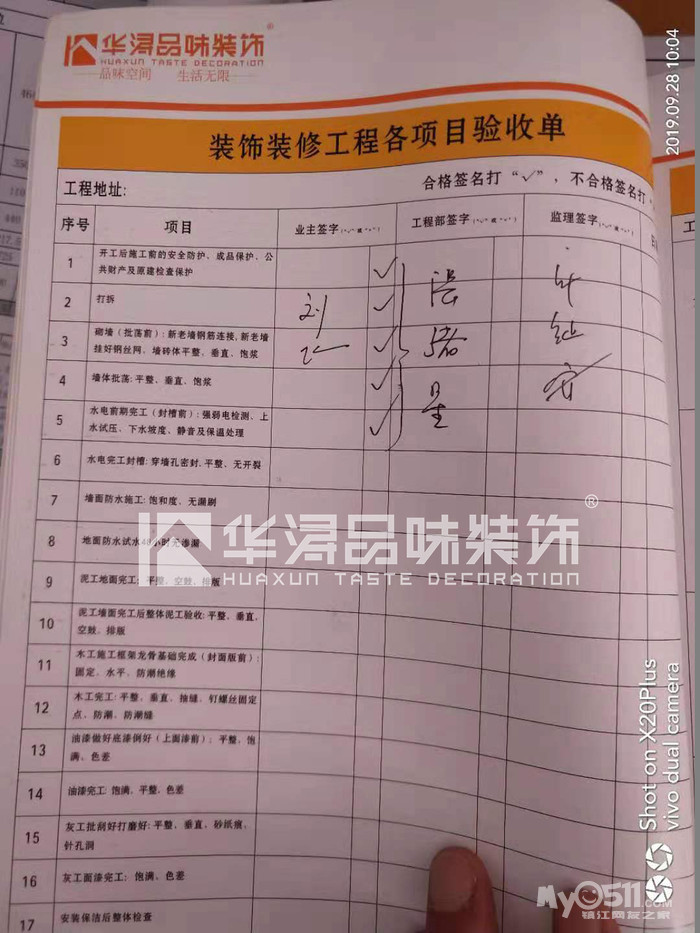 华浔品味装饰®
HUAXUN TASTE DECORATION
品味空间 生活无限
2019.09.28 10:04
装饰装修工程各项目验收单
工程地址:
合格签名打“√”，不合格签名打“
序号 项目 业主签字 工程部签字 监理签字
1 开工后施工前的安全防护、成品保护、公
共财产及原建检查保护
2 打拆
3 砌墙（批荡前）: 新老墙钢筋连接, 新老墙
挂好钢丝网、墙砖体平整、垂直、饱浆
4 墙体批荡: 平整、垂直、饱浆
5 水电前期完工（封槽前）: 强弱电检测、上
水试压、下水坡度、静音及保温处理
刘
√
√
√
√
√
星
6 水电完工封槽: 穿墙孔密封, 平整、无开裂
7 墙面防水施工: 饱和度、无漏刷
8 地面防水试水48小时无渗漏
华浔品味装饰®
HUAXUN TASTE DECORATION
9 泥工地面完工: 平整、空鼓、排版
10 泥工墙面完工后整体泥工验收: 平整、垂直、
空鼓、排版
11 木工施工框架龙骨基础完成（封面版前）:
固定、水平、防潮绝缘
12 木工完工: 平整、垂直、抽缝、钉螺丝固定
点、防潮、防潮缝
13 油漆做好底漆倒好（上面漆前）: 平整、饱
满、色差
14 油漆完工: 饱满、平整、色差
15 灰工批刮好打磨好: 平整、垂直、砂纸痕、
针孔洞
16 灰工面漆完工: 饱满、色差
17 安装保洁后整体检查
Shot on X20Plus
vivo dual camera
My0511.COM
镇江网友之家